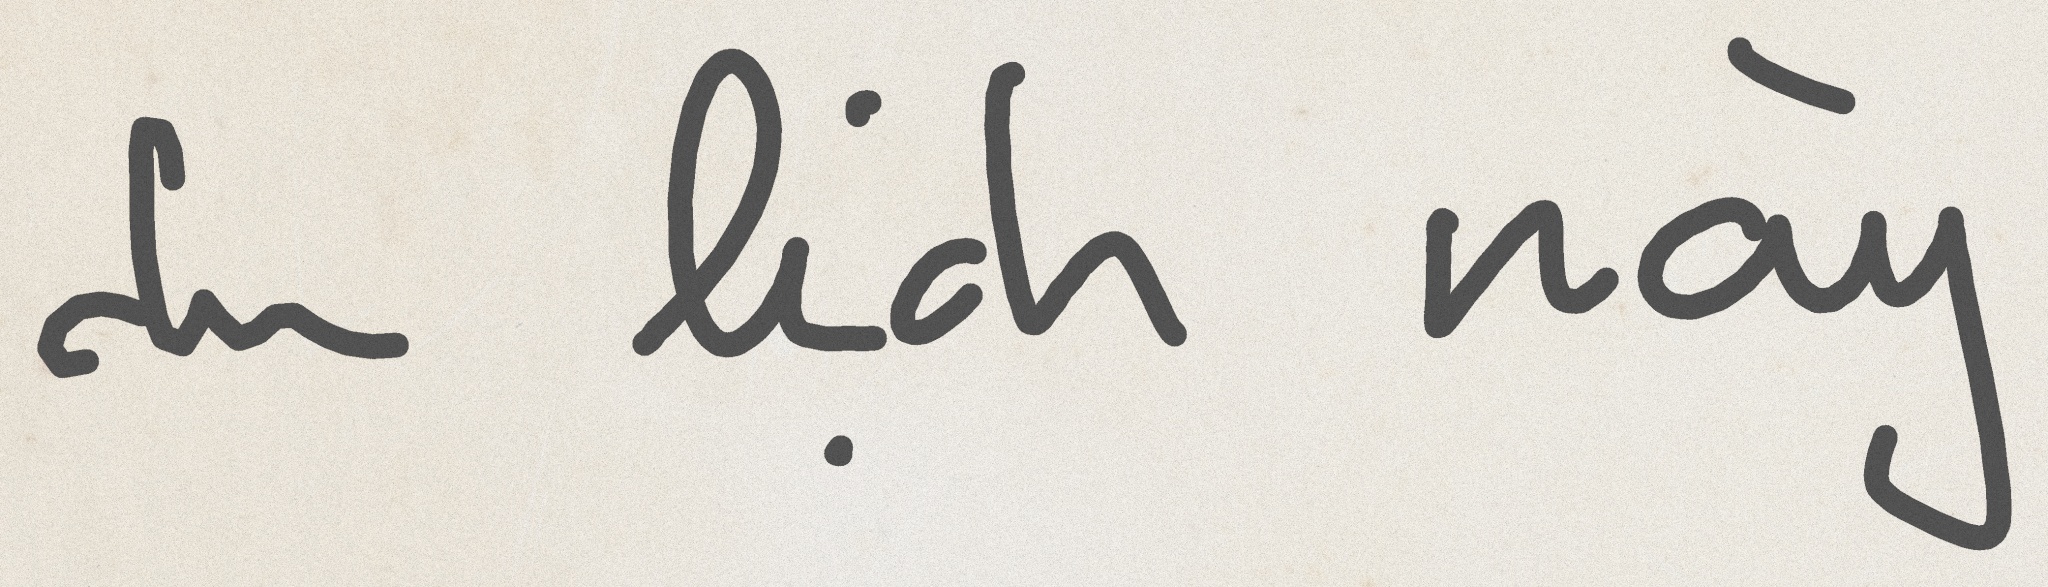 du lịch này